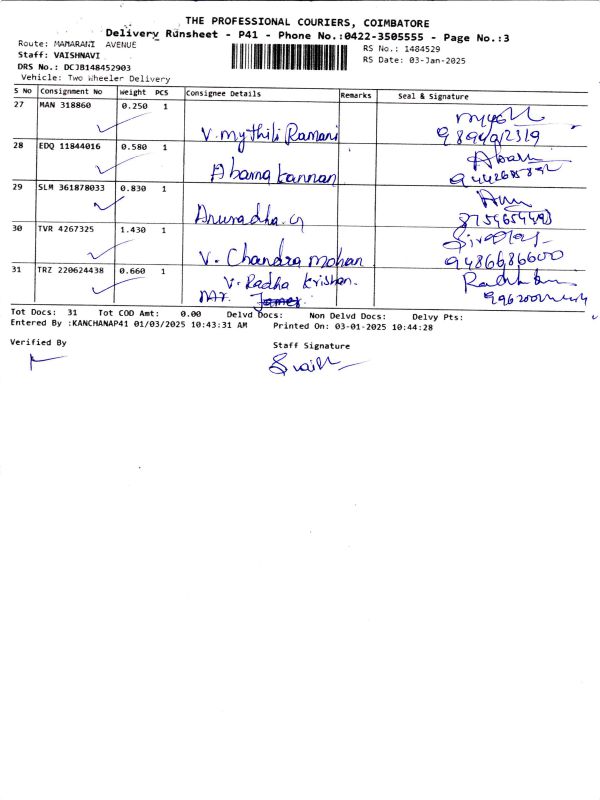 THE PROFESSIONAL COURIERS, COIMBATORE
Delivery Runsheet - P41 - Phone No.:0422-3505555 - Page No.:3
Route: MAMARANI AVENUE
RS No.: 1484529
Staff: VAISHNAVI
RS Date: 03-Jan-2025
DRS No.: DCJB148452903
Vehicle: Two Wheeler Delivery
S No Consignment No Weight PCS Consignee Details Remarks Seal & Signature
27 MAN 318860 0.250 1
V. Mythili Ramani
28 EDQ 11844016 0.580 1
Abarna kannan
29 SLM 361878033 0.830 1
Anuradha. G
30 TVR 4267325 1.430 1
V. Chandra mohan 9486686600
31 TRZ 220624438 0.660 1 V. Radha krishan.
Mr. James
Tot Docs: 31 Tot COD Amt: 0.00 Delvd Docs: Non Delvd Docs: Delvy Pts:
Entered By :KANCHANAP41 01/03/2025 10:43:31 AM Printed On: 03-01-2025 10:44:28
Verified By Staff Signature